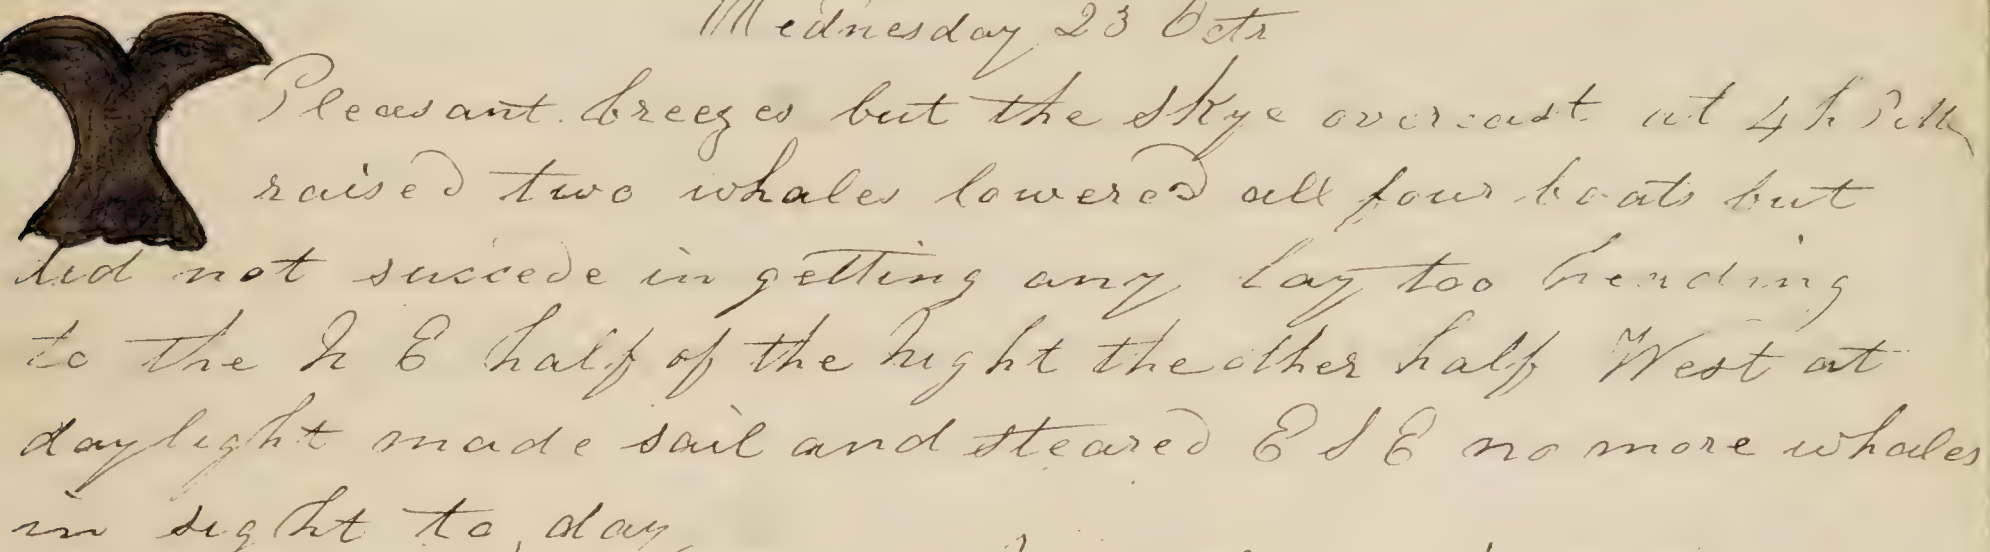 Wednesday 23 Octr
Pleasant breezes but the skye overcast at 4 h P.M
raised two whales lowered all four boats but
did not succede in getting any lay too heading
to the N E half of the night the other half West at
daylight made sail and steared E S E no more whales
in sight to day